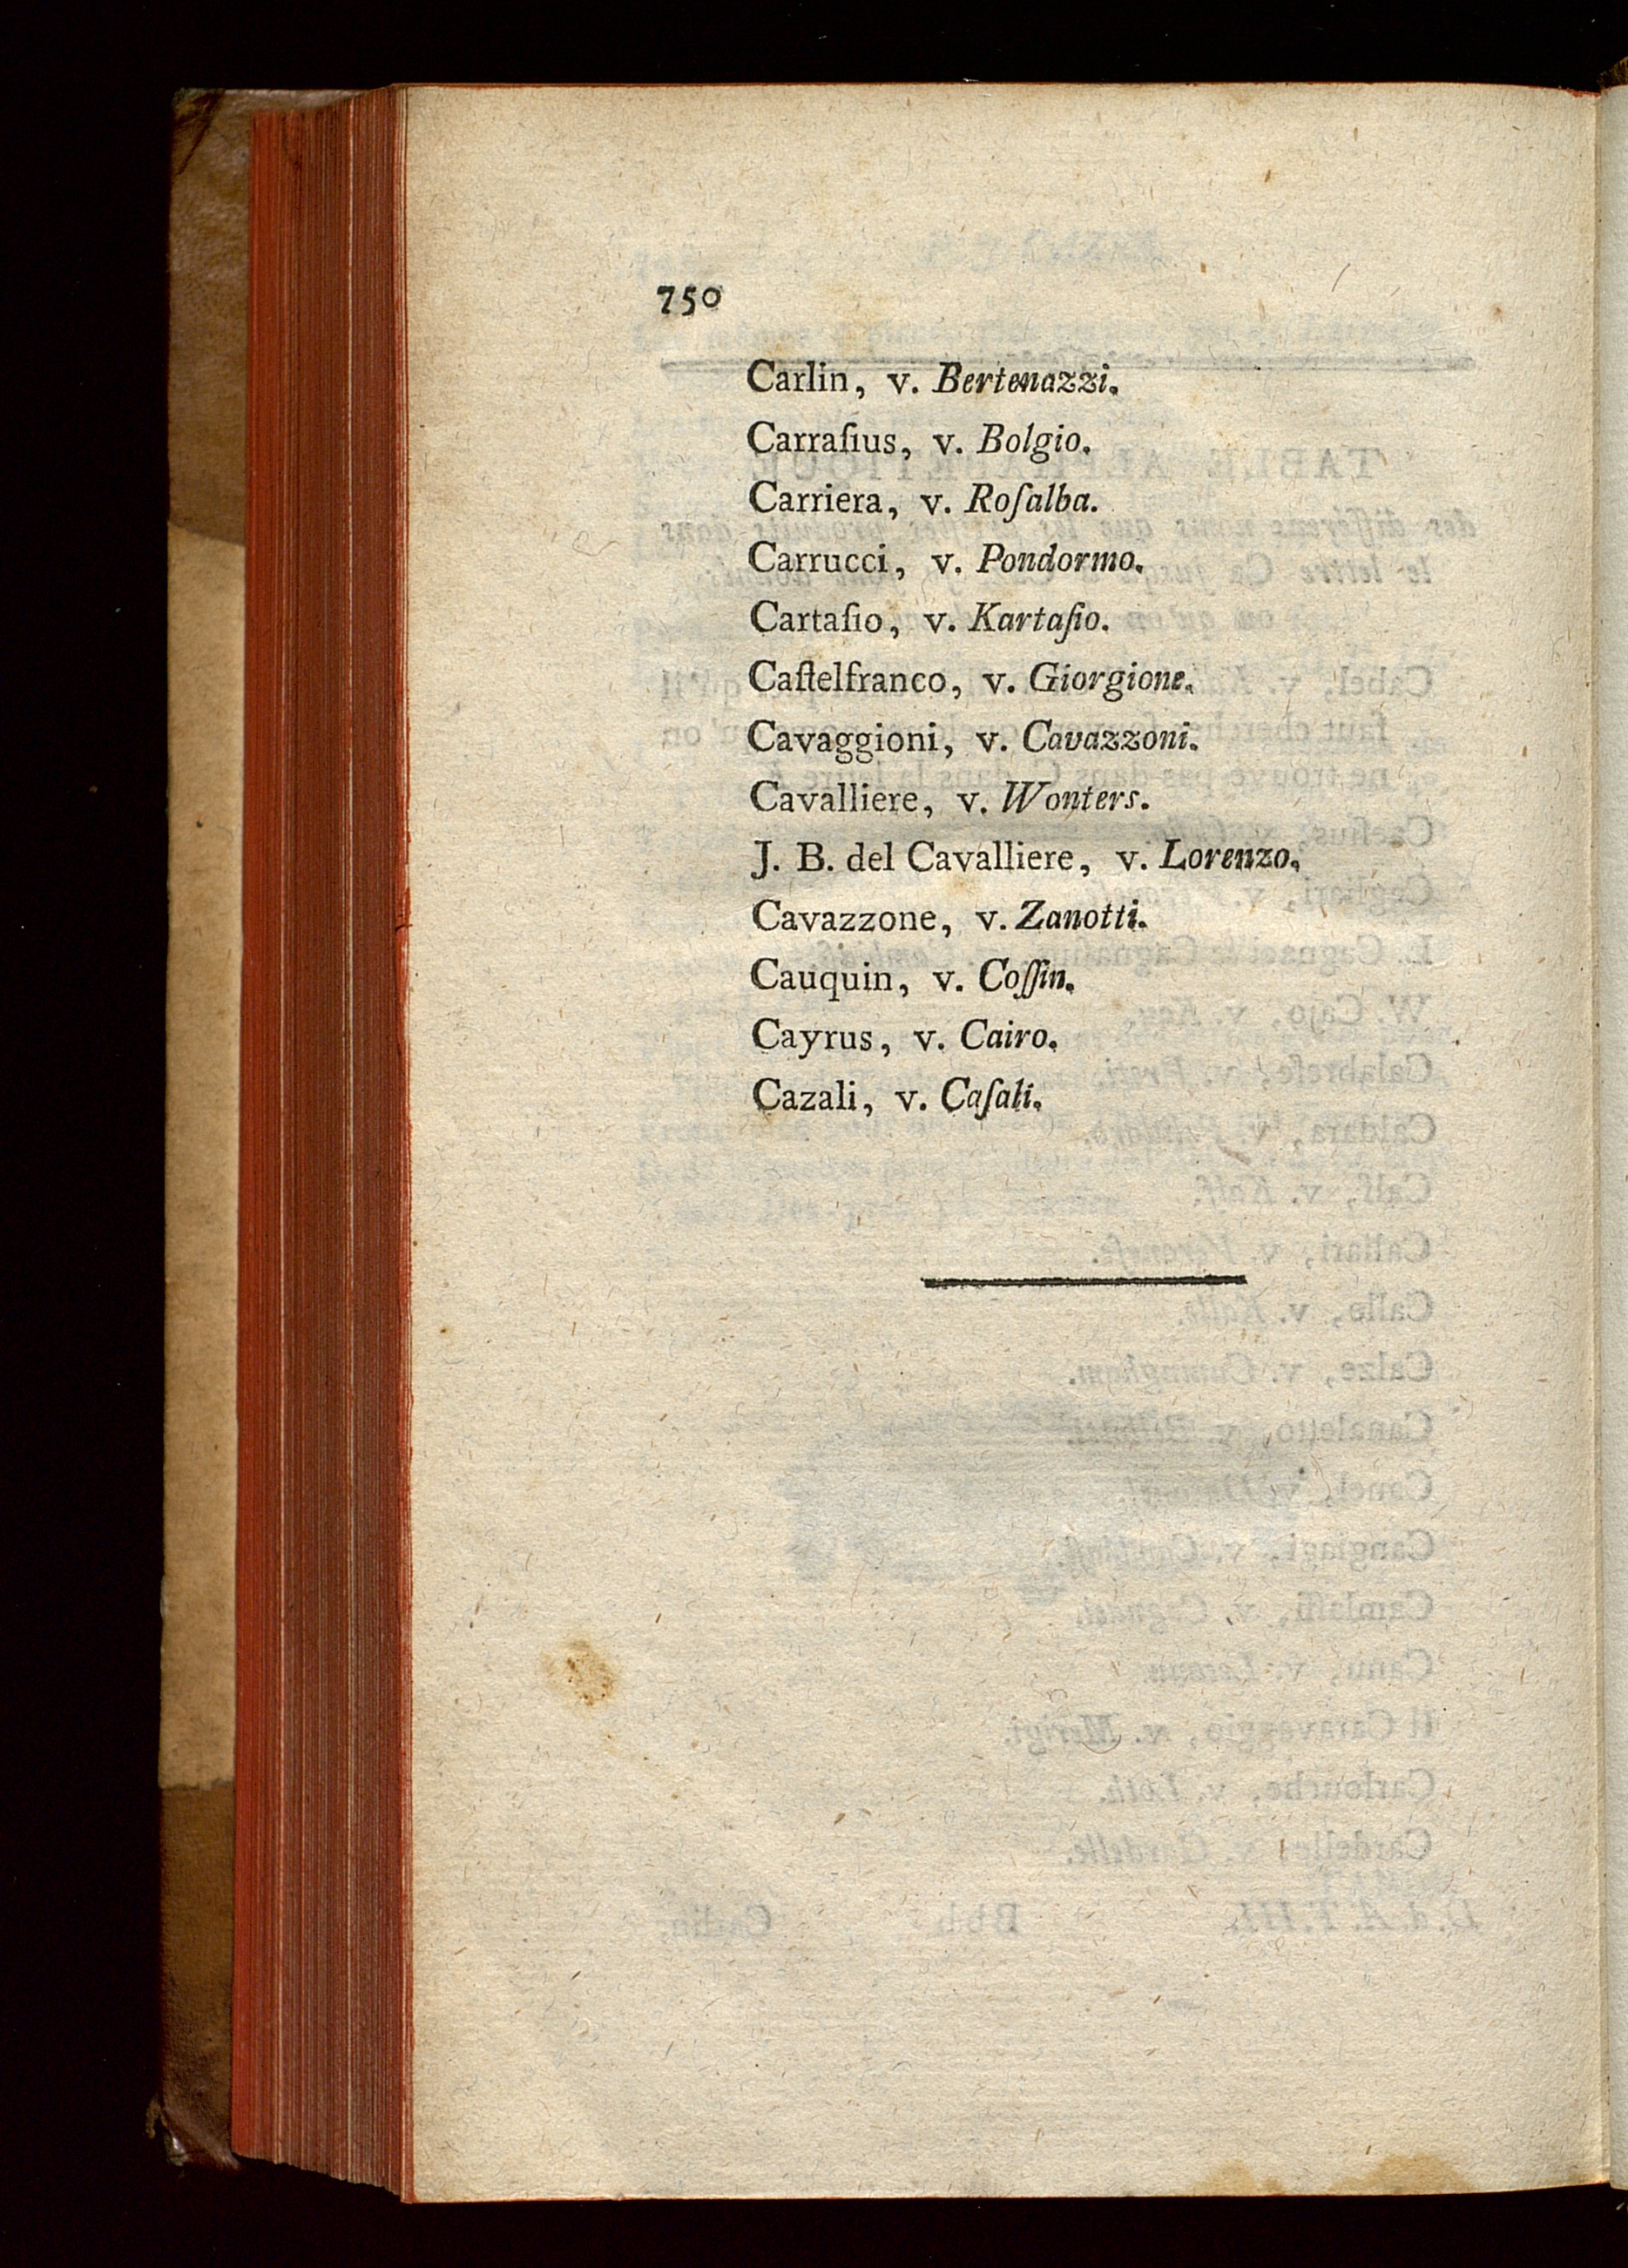 750
Carlin, v. Bertenazzi.
Carraſius, v. Bolgio.
Carriera, v. Roſalba.
Carrucci, v. Pondormo.
Cartaſio, v. Kartaſio.
Caſtelfranco, v. Giorgione.
Cavaggioni, v. Cavazzoni.
Cavalliere, v. Wonters.
J. B. del Cavalliere, v. Lorenzo.
Cavazzone, v. Zanotti.
Cauquin, v. Coſſin.
Cayrus, v. Cairo.
Cazali, v. Caſali.